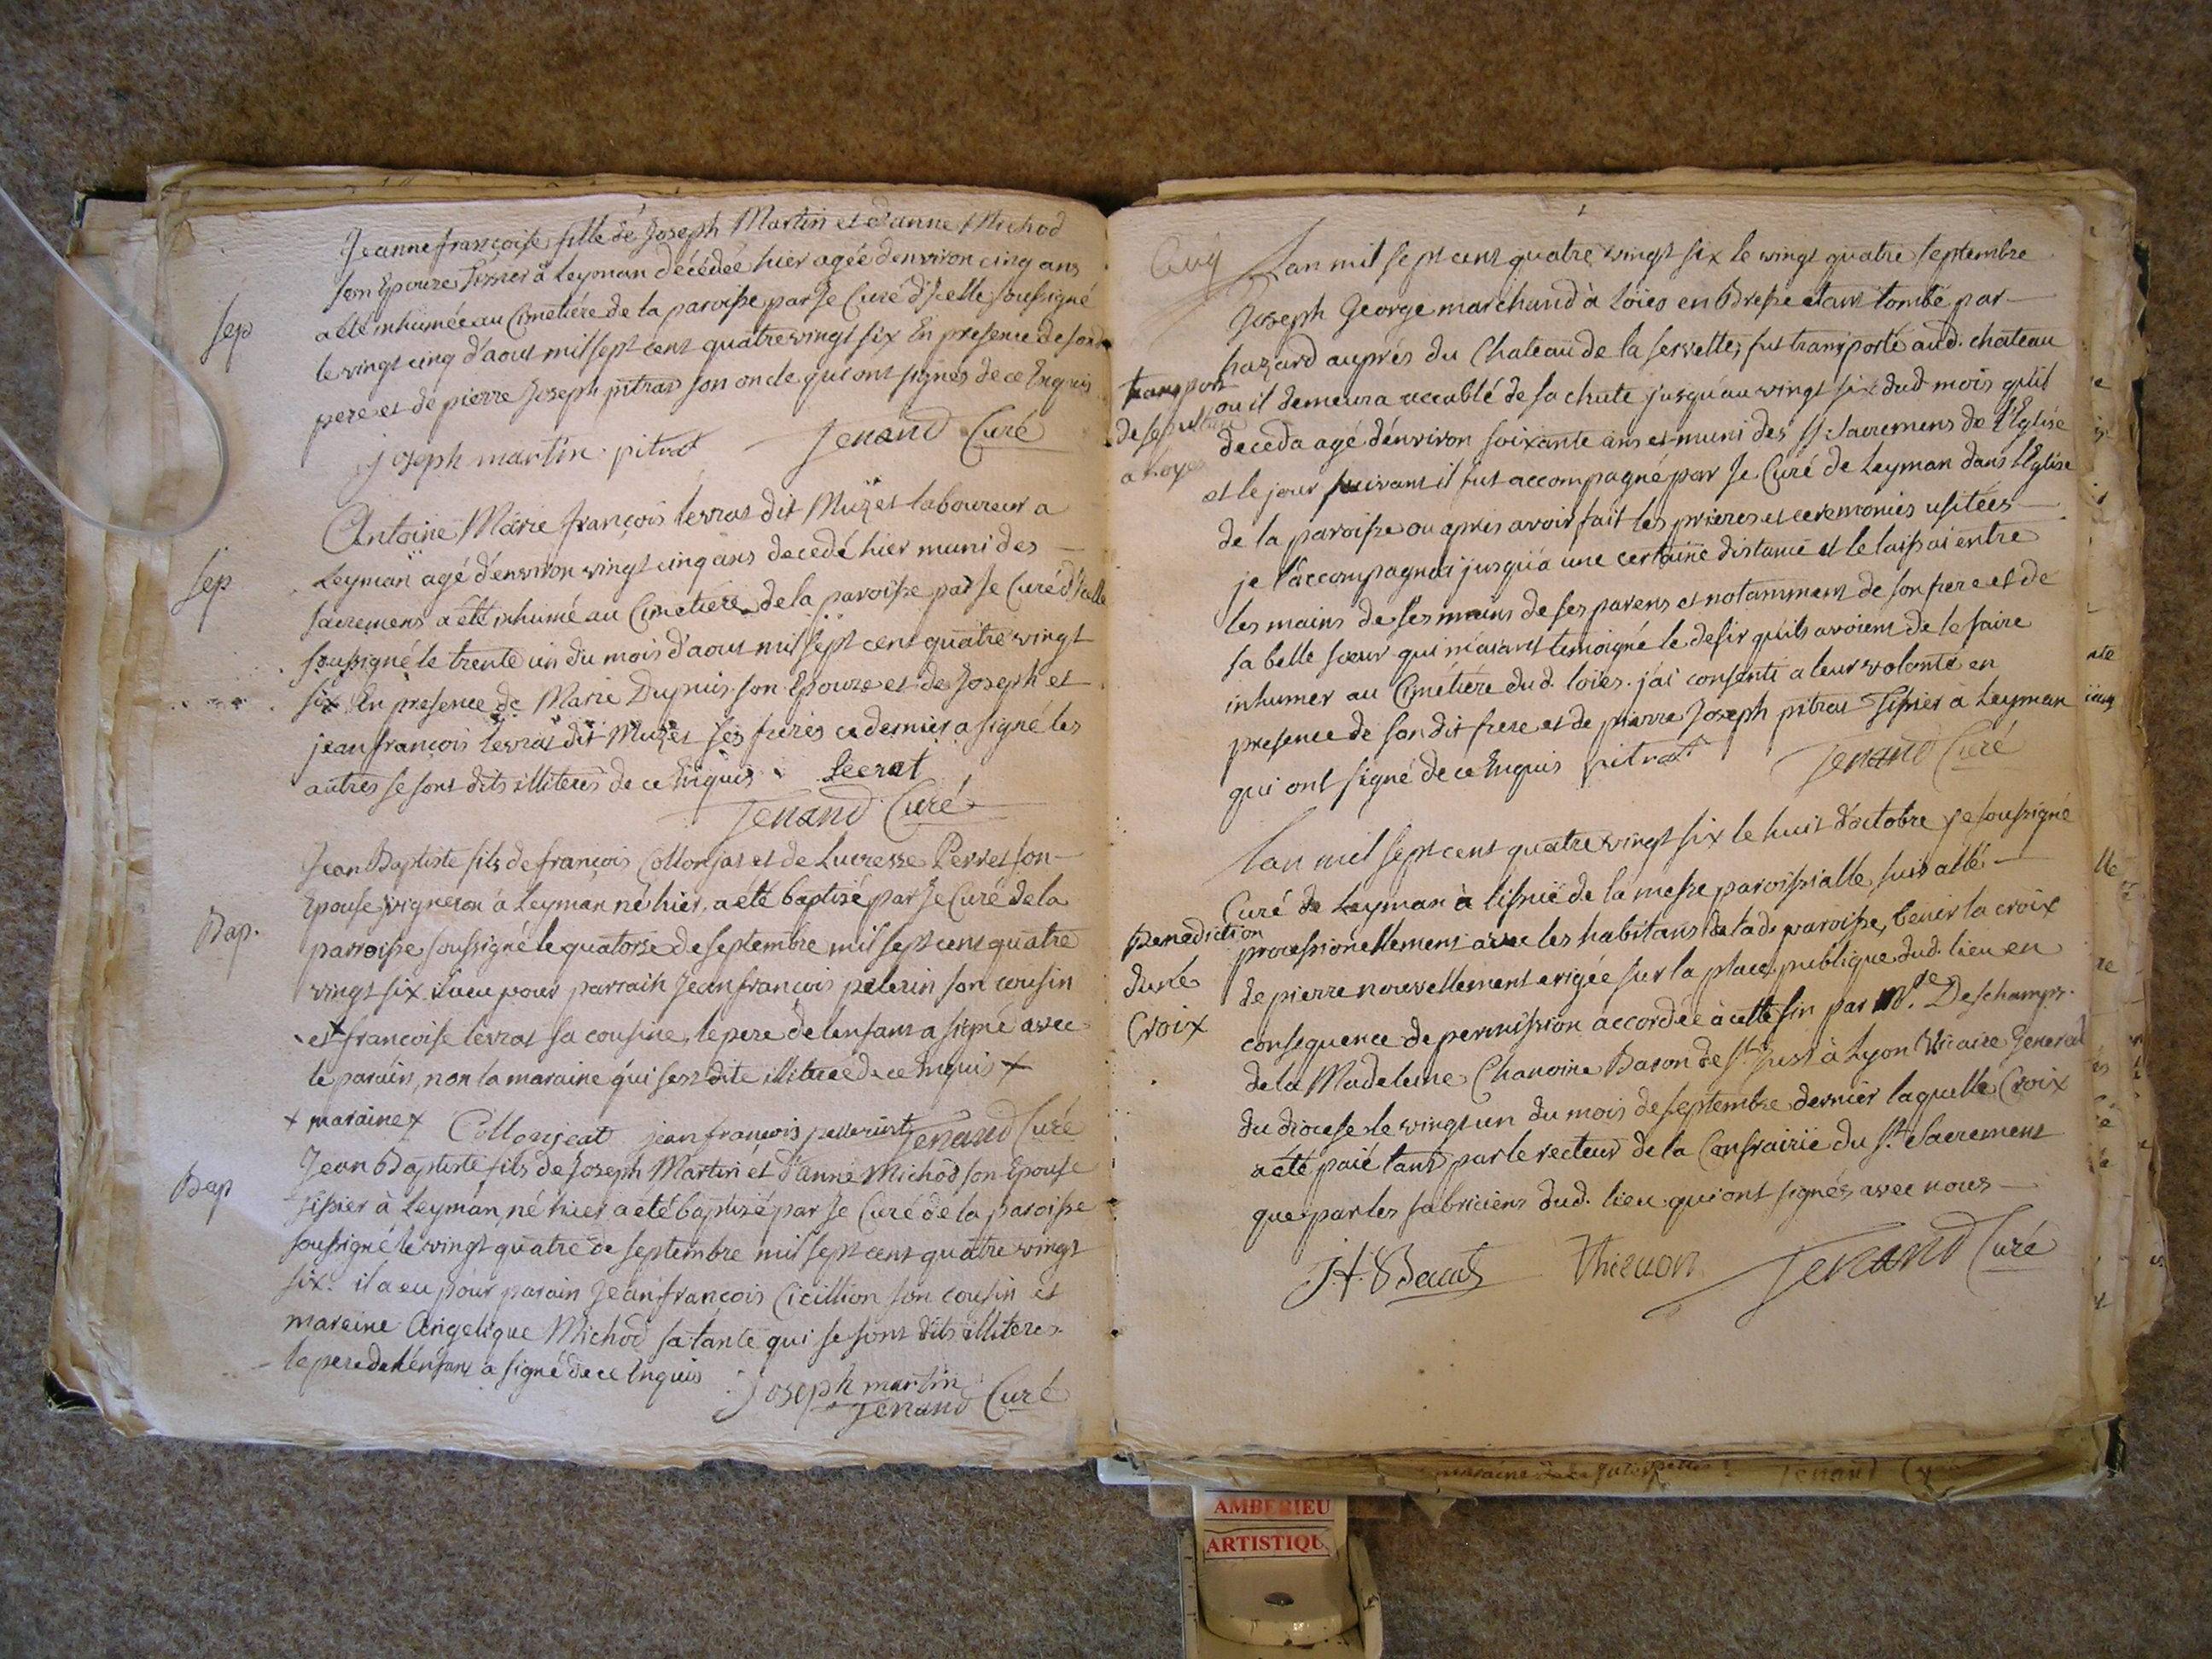 Jeanne françoise fille de Joseph Martin et d'anne Michod
son Epouze tissier à Leyman décédée hier agée d'environ cinq ans
Sep
a été inhumée au Cimetiére de la paroisse par Je Curé d'Icelle soussigné
le vingt cinq d'aout mil sept cent quatre vingt six En presence de son
pere et de pierre Joseph pitrat son oncle qui ont signés de ce Enquis
joseph martin pitrat Jenand Curé
Antoine Marie françois levrat dit Muzet laboureur a
Sep
Leyman agé d'environ vingt cinq ans decedé hier muni des
sacremens a été inhumé au Cimetiére de la paroisse par Je Curé d'Icelle
soussigné le trente un du mois d'aout mil sept cent quatre vingt
six En presence de Marie Dupuis son Epouze et de Joseph et
jean françois levrat dit Muzet ses freres ce dernier a signé les
autres se sont dits illiteres de ce Enquis
Jenand Curé
Jean Baptiste fils de françois Collonjat et de Lucresse Perret son
Bap.
Epouse, vigneron à Leyman né hier, a été baptisé par Je Curé de la
parroisse soussigné le quatorse de septembre mil sept cent quatre
vingt six il a eu pour parrain Jean françois pelerin son cousin
et x francoise levrat sa cousine, le pere de lenfant a signé avec
le parain, non la maraine qui sest dite illiterée de ce Enquis x
x maraine x Collonjeat jean françois pellerint Jenand Curé
Bap
Jean Baptiste fils de Joseph Martin et d'anne Michod son Epouse
tissier à Leyman, né hier a été baptisé par Je Curé de la paroisse
soussigné le vingt quatre de septembre mil sept cent quatre vingt
six. il a eu pour parain Jean françois Cicillion son cousin et
maraine Angelique Michod sa tante qui se sont dits illiteres
le pere de lénfant a signé de ce Enquis
joseph martin
Jenand Curé
Lan mil sept cent quatre vingt six le vingt quatre septembre
Joseph George marchand à Loies en Bresse etant tombé par
hazard auprés du Chateau de la servette, fut transporté aud. chateau
transport
de sepulture
a Loyes
ou il demeura accablé de sa chute jusqu'au vingt six dud. mois qu'il
deceda agé d'environ soixante ans et muni des SS. sacremens de l'Eglise
et le jour suivant il fut accompagné par Je Curé de Leyman dans l'Eglise
de la paroisse ou apres avoir fait les prieres et ceremonies usitées
je l'accompagnai jusqu'à une certaine distance et le laissai entre
les mains de ses mains de ses parens et notamment de son frere et de
sa belle sœur qui m'aiant temoigné le desir qu'ils avoient de le faire
inhumer au Cimétiére dud. loies. j'ai consenti a leur volonté en
presence de son dit frere et de pierre Joseph pitrat tissier à Leyman
qui ont signé de ce Enquis pitrat Jenand Curé
lan mil sept cent quatre vingt six le huit d'octobre je soussigné
Curé de Leyman à l'issuë de la messe paroissialle suis allé
Benediction
dune
Croix
processionellement avec les habitans de la d. paroisse, benir la croix
de pierre nouvellement erigée sur la place publique dud. lieu en
consequence de permission accordée à cette fin par Mr. Deschamps
de la Madeleine Chanoine Baron de St. Just à Lyon Vicaire General
du diocese le vingt un du mois de septembre dernier laquelle Croix
a été paié tant par le recteur de la Confrairie du St. Sacrement
que par les fabriciens dud. lieu qui ont signés avec nous
Thievon Jenand Curé
AMBERIEU
ARTISTIQU